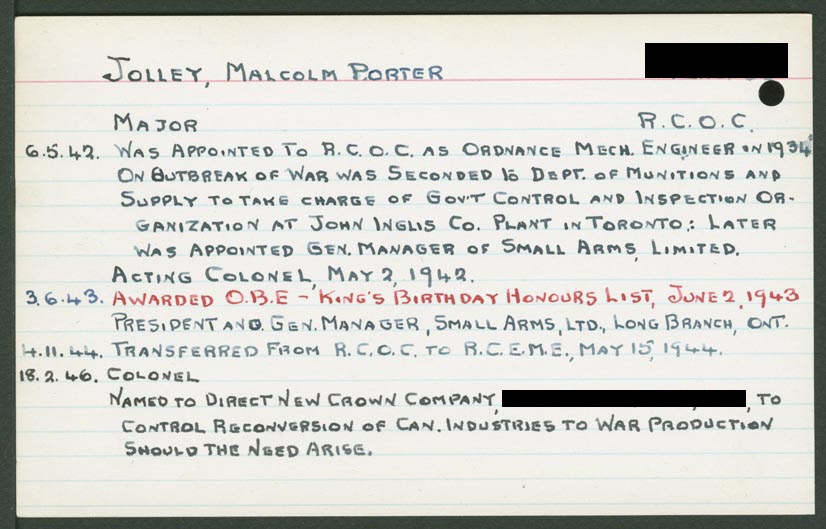 JOLLEY, MALCOLM PORTER
MAJOR R.C.O.C.
6.5.42. WAS APPOINTED TO R.C.O.C. AS ORDNANCE MECH. ENGINEER IN 1934
ON OUTBREAK OF WAR WAS SECONDED TO DEPT. OF MUNITIONS AND
SUPPLY TO TAKE CHARGE OF GOV'T CONTROL AND INSPECTION OR-
GANIZATION AT JOHN INGLIS CO. PLANT IN TORONTO.: LATER
WAS APPOINTED GEN. MANAGER OF SMALL ARMS, LIMITED.
ACTING COLONEL, MAY 2, 1942.
3.6.43. AWARDED O.B.E - KING'S BIRTHDAY HONOURS LIST, JUNE 2, 1943
PRESIDENT AND. GEN. MANAGER, SMALL ARMS, LTD., LONG BRANCH, ONT.
4.11.44. TRANSFERRED FROM R.C.O.C. TO R.C.E.M.E., MAY 15, 1944.
18.2.46. COLONEL
NAMED TO DIRECT NEW CROWN COMPANY, , TO
CONTROL RECONVERSION OF CAN. INDUSTRIES TO WAR PRODUCTION
SHOULD THE NEED ARISE.